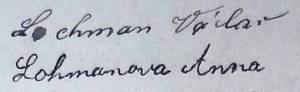 Lochman Václav
Lohmanova Anna